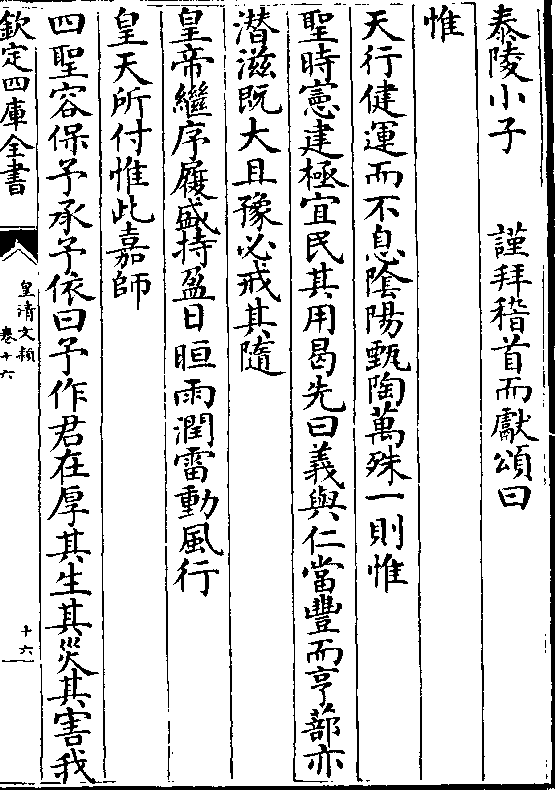 泰陵小子　　謹拜稽首而獻頌曰
惟
天行健運而不息陰陽甄陶萬殊一則惟
聖時憲建極宜民其用曷先曰義與仁當豐而亨蔀亦
潜滋既大且豫必戒其隨
皇帝繼序履盛持盈日晅雨潤雷動風行
皇天所付惟此嘉師
四聖容保予承予依曰予作君在厚其生其災其害我
欽定四庫全書
皇清文頴
卷十六
十六